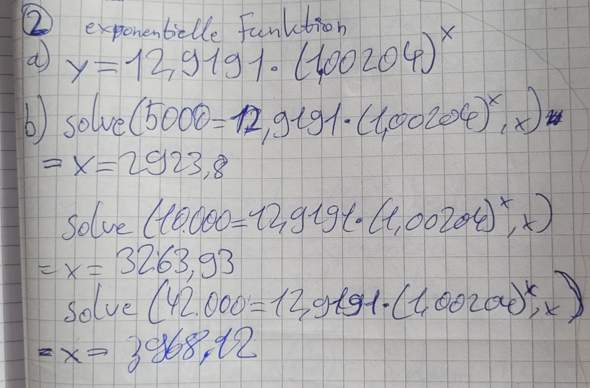 ② exponentielle Funktion
a) y=12,9191·(1,00204)^x
b) solve(5000=12,9191·(1,00204)^x,x)
=x=2923,8
solve(10.000=12,9191·(1,00204)^x,x)
=x=3263,93
solve(42.000=12,9191·(1,00204)^x,x)
=x=3968,12